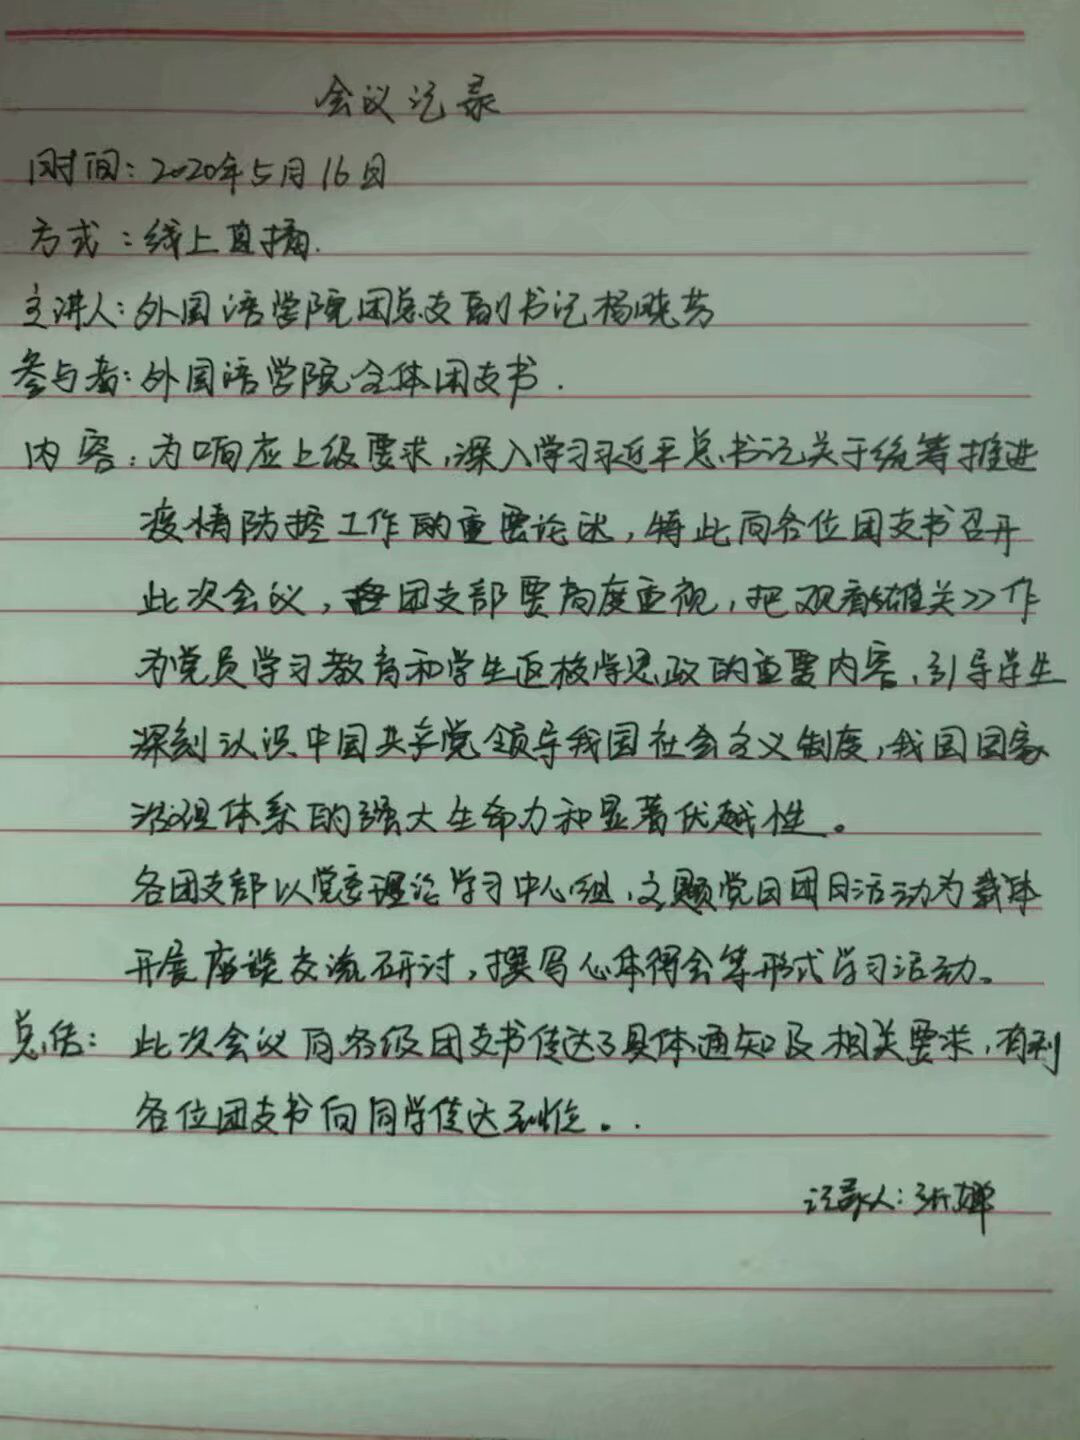 会议记录
时间：2020年5月16日
方式：线上直播.
主讲人：外国语学院团总支副书记杨晓芳
参与者：外国语学院全体团支书.
内容：为响应上级要求，深入学习习近平总书记关于统筹推进
疫情防控工作的重要论述，特此向各位团支书召开
此次会议，各团支部要高度重视，把观看《雄关》》作
为党员学习教育和学生返校学思政的重要内容，引导学生
深刻认识中国共产党领导我国社会主义制度，我国国家
治理体系的强大生命力和显著优越性。
各团支部以党委理论学习中心组，主题党日团日活动为载体
开展座谈交流研讨，撰写心体得会等形式学习活动。
总结：此次会议向各级团支书传达了具体通知及相关要求，有利
各位团支书向同学传达到位。.
记录人：张婵